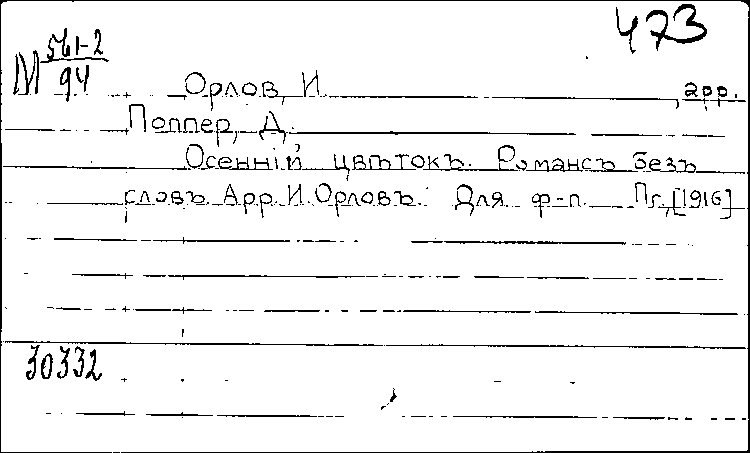 473
М 561-2
94
Орлов, И. , арр.
Поппер, Д.
Осеннiй цвѣтокъ. Романсъ безъ
словъ. Арр. И. Орловъ. Для ф-п. Пг., [1916]
30332